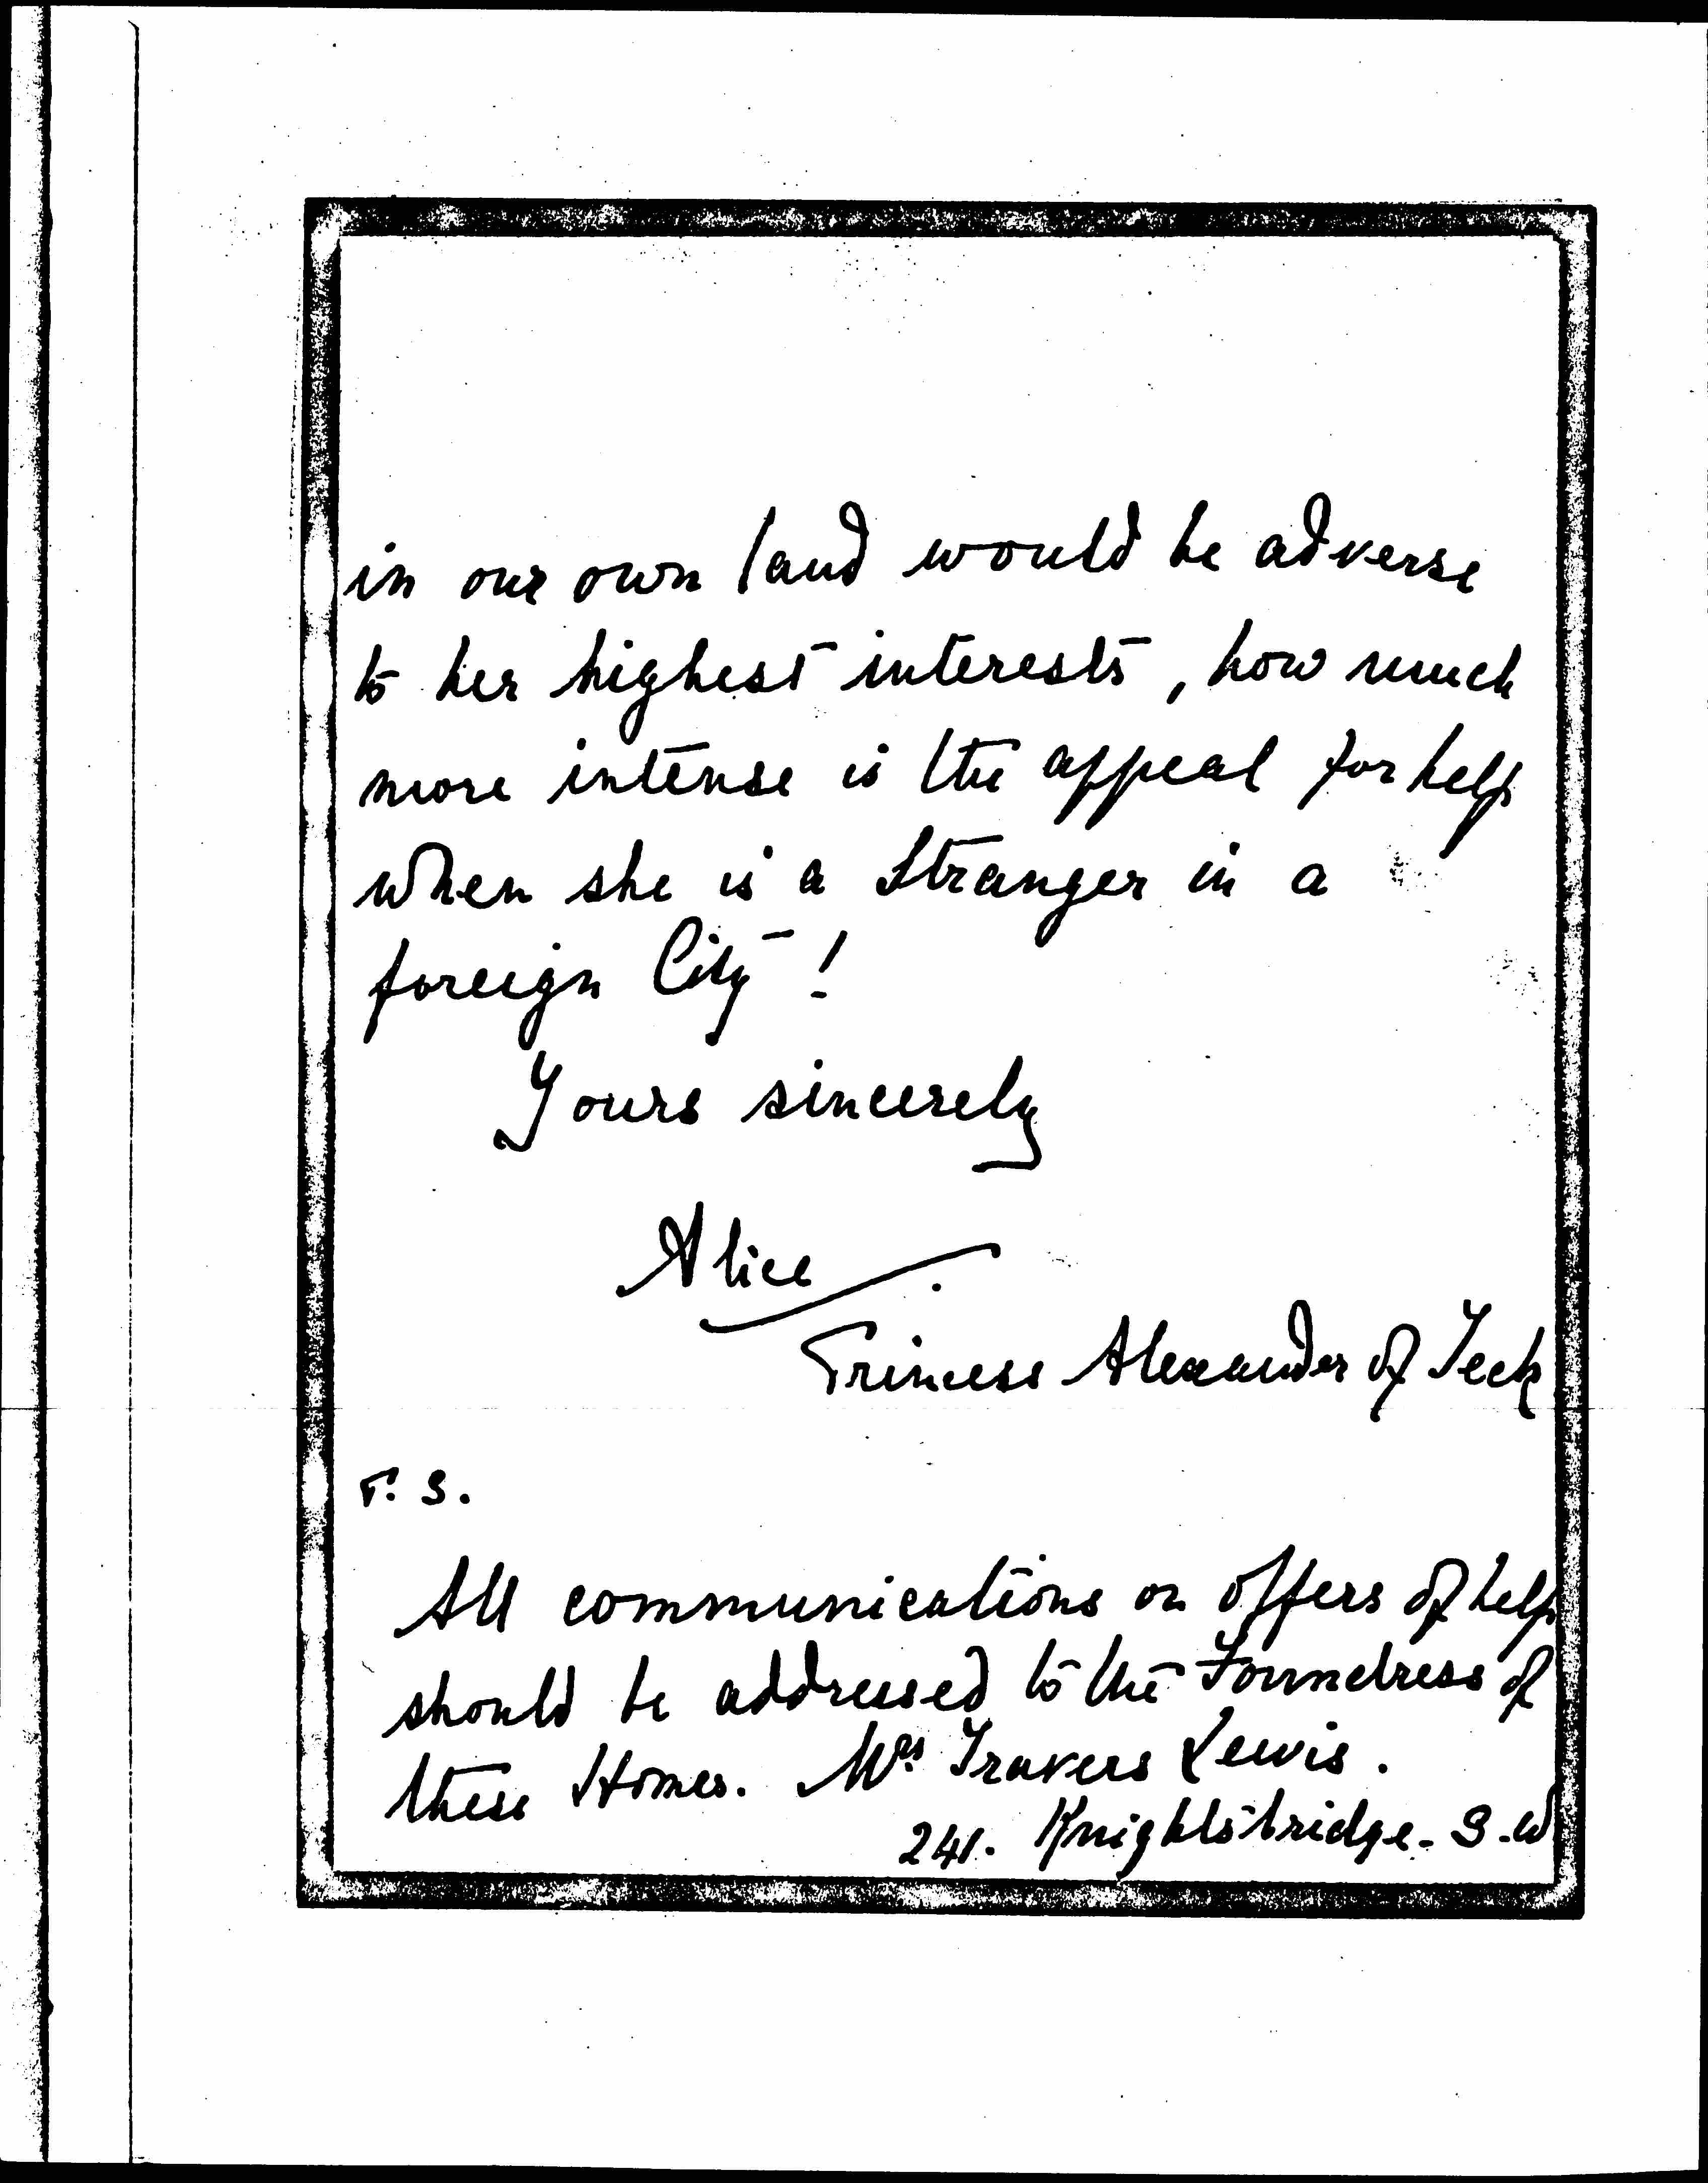 in our own land would be adverse
to her highest interests, how much
more intense is the appeal for help
when she is a Stranger in a
foreign City!
Yours sincerely
Alice
Princess Alexander of Teck
P. S.
All communications or offers of help
should be addressed to the Foundress of
these Homes. Mrs Travers Lewis.
241. Knightsbridge. S.W